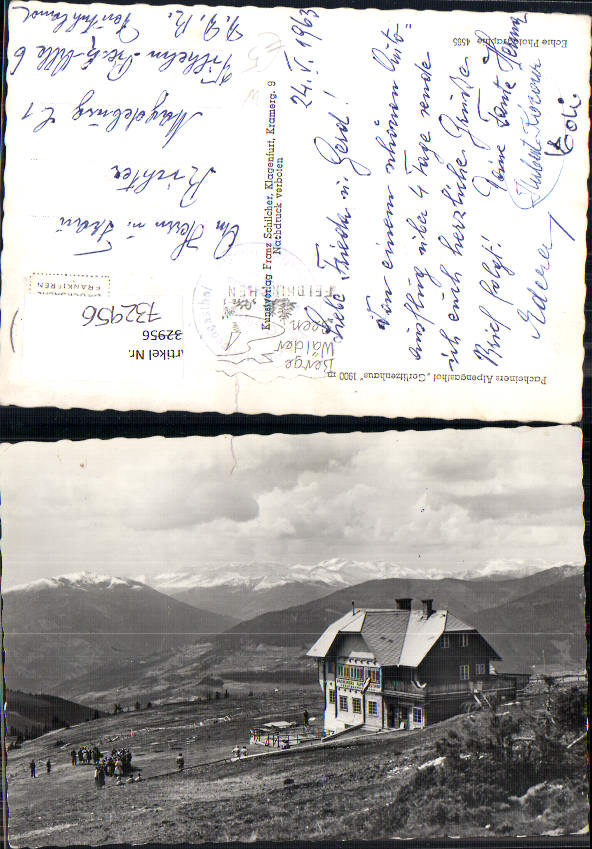 Pacheiners Alpengasthof „Gerlitzenhaus" 1900 m
24. VI. 1963
Liebe Frieda u. Gerd!
Von einem schönen Auto=
ausflug über 4 Tage sende
ich euch herzliche Grüße
Brief folgt! Deine Tante
Kunstverlag Franz Schilcher, Klagenfurt, Kramerg. 9
Nachdruck verboten
Echte Photographie 4585
Berge
Wälder
FELDKIRCHEN
FRANKIEREN
An Herrn u. Frau
Richter
Magdeburg
Wilhelm-Pieck-Allee 6
D. D. R.
732956
Artikel Nr.
32956